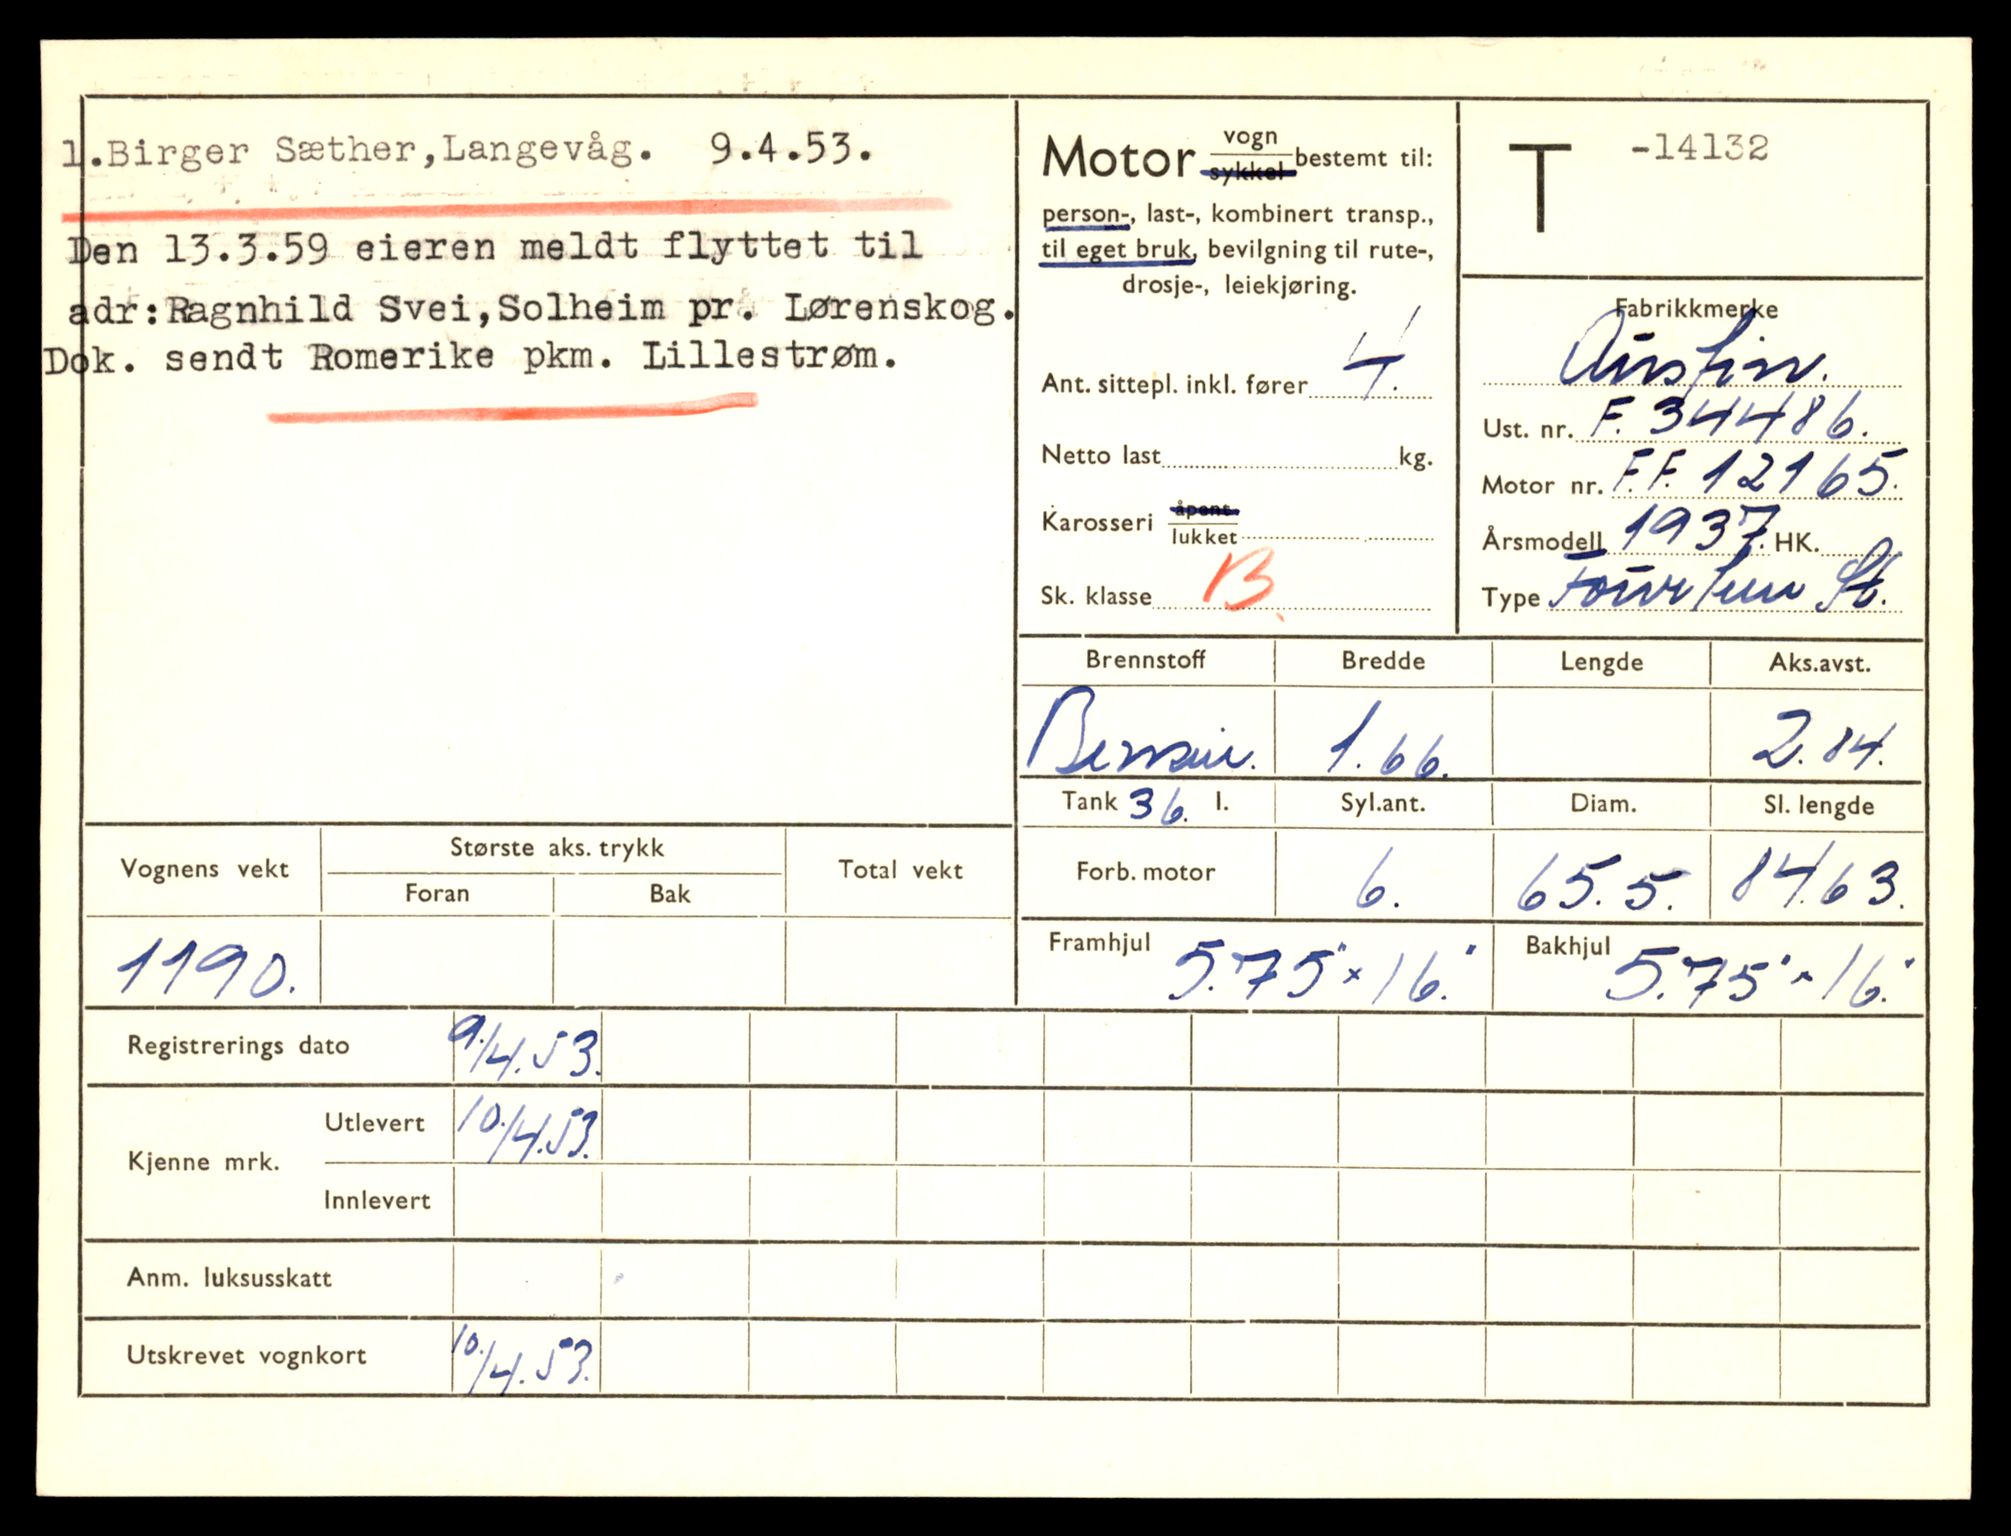 1.Birger Sæther,Langevåg. 9.4.53.
Den 13.3.59 eieren meldt flyttet til
adr:Ragnhild Svei,Solheim pr. Lørenskog.
Dok. sendt Romerike pkm. Lillestrøm.
Motor vogn sykkel bestemt til:
person-, last-, kombinert transp.,
til eget bruk, bevilgning til rute-,
drosje-, leiekjøring.
Ant. sittepl. inkl. fører 4.
Netto last kg.
Karosseri åpent lukket
Sk. klasse B.
T -14132
Fabrikkmerke
Austin.
Ust. nr. F. 34486.
Motor nr. F.F. 12165.
Årsmodell 1937. HK.
Type Fourteen St.
Brennstoff Bredde Lengde Aks.avst.
Bensin. 1.66. 2.84.
Tank 36. l. Syl.ant. Diam. Sl. lengde
Forb. motor 6. 65.5. 84.63.
Framhjul 5.75" x 16." Bakhjul 5.75" x 16."
Vognens vekt Største aks. trykk Total vekt
Foran Bak
1190.
Registrerings dato 9/4.53.
Kjenne mrk. Utlevert 10./4.53.
Innlevert
Anm. luksusskatt
Utskrevet vognkort 10./4.53.